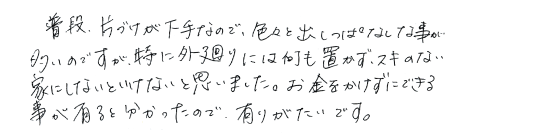 普段、片づけが下手なので、色々と出しっぱなしな事が
多いのですが、特に外廻りには何も置かず、スキのない
家にしないといけないと思いました。お金をかけずにできる
事が有ると分かったので、有りがたいです。